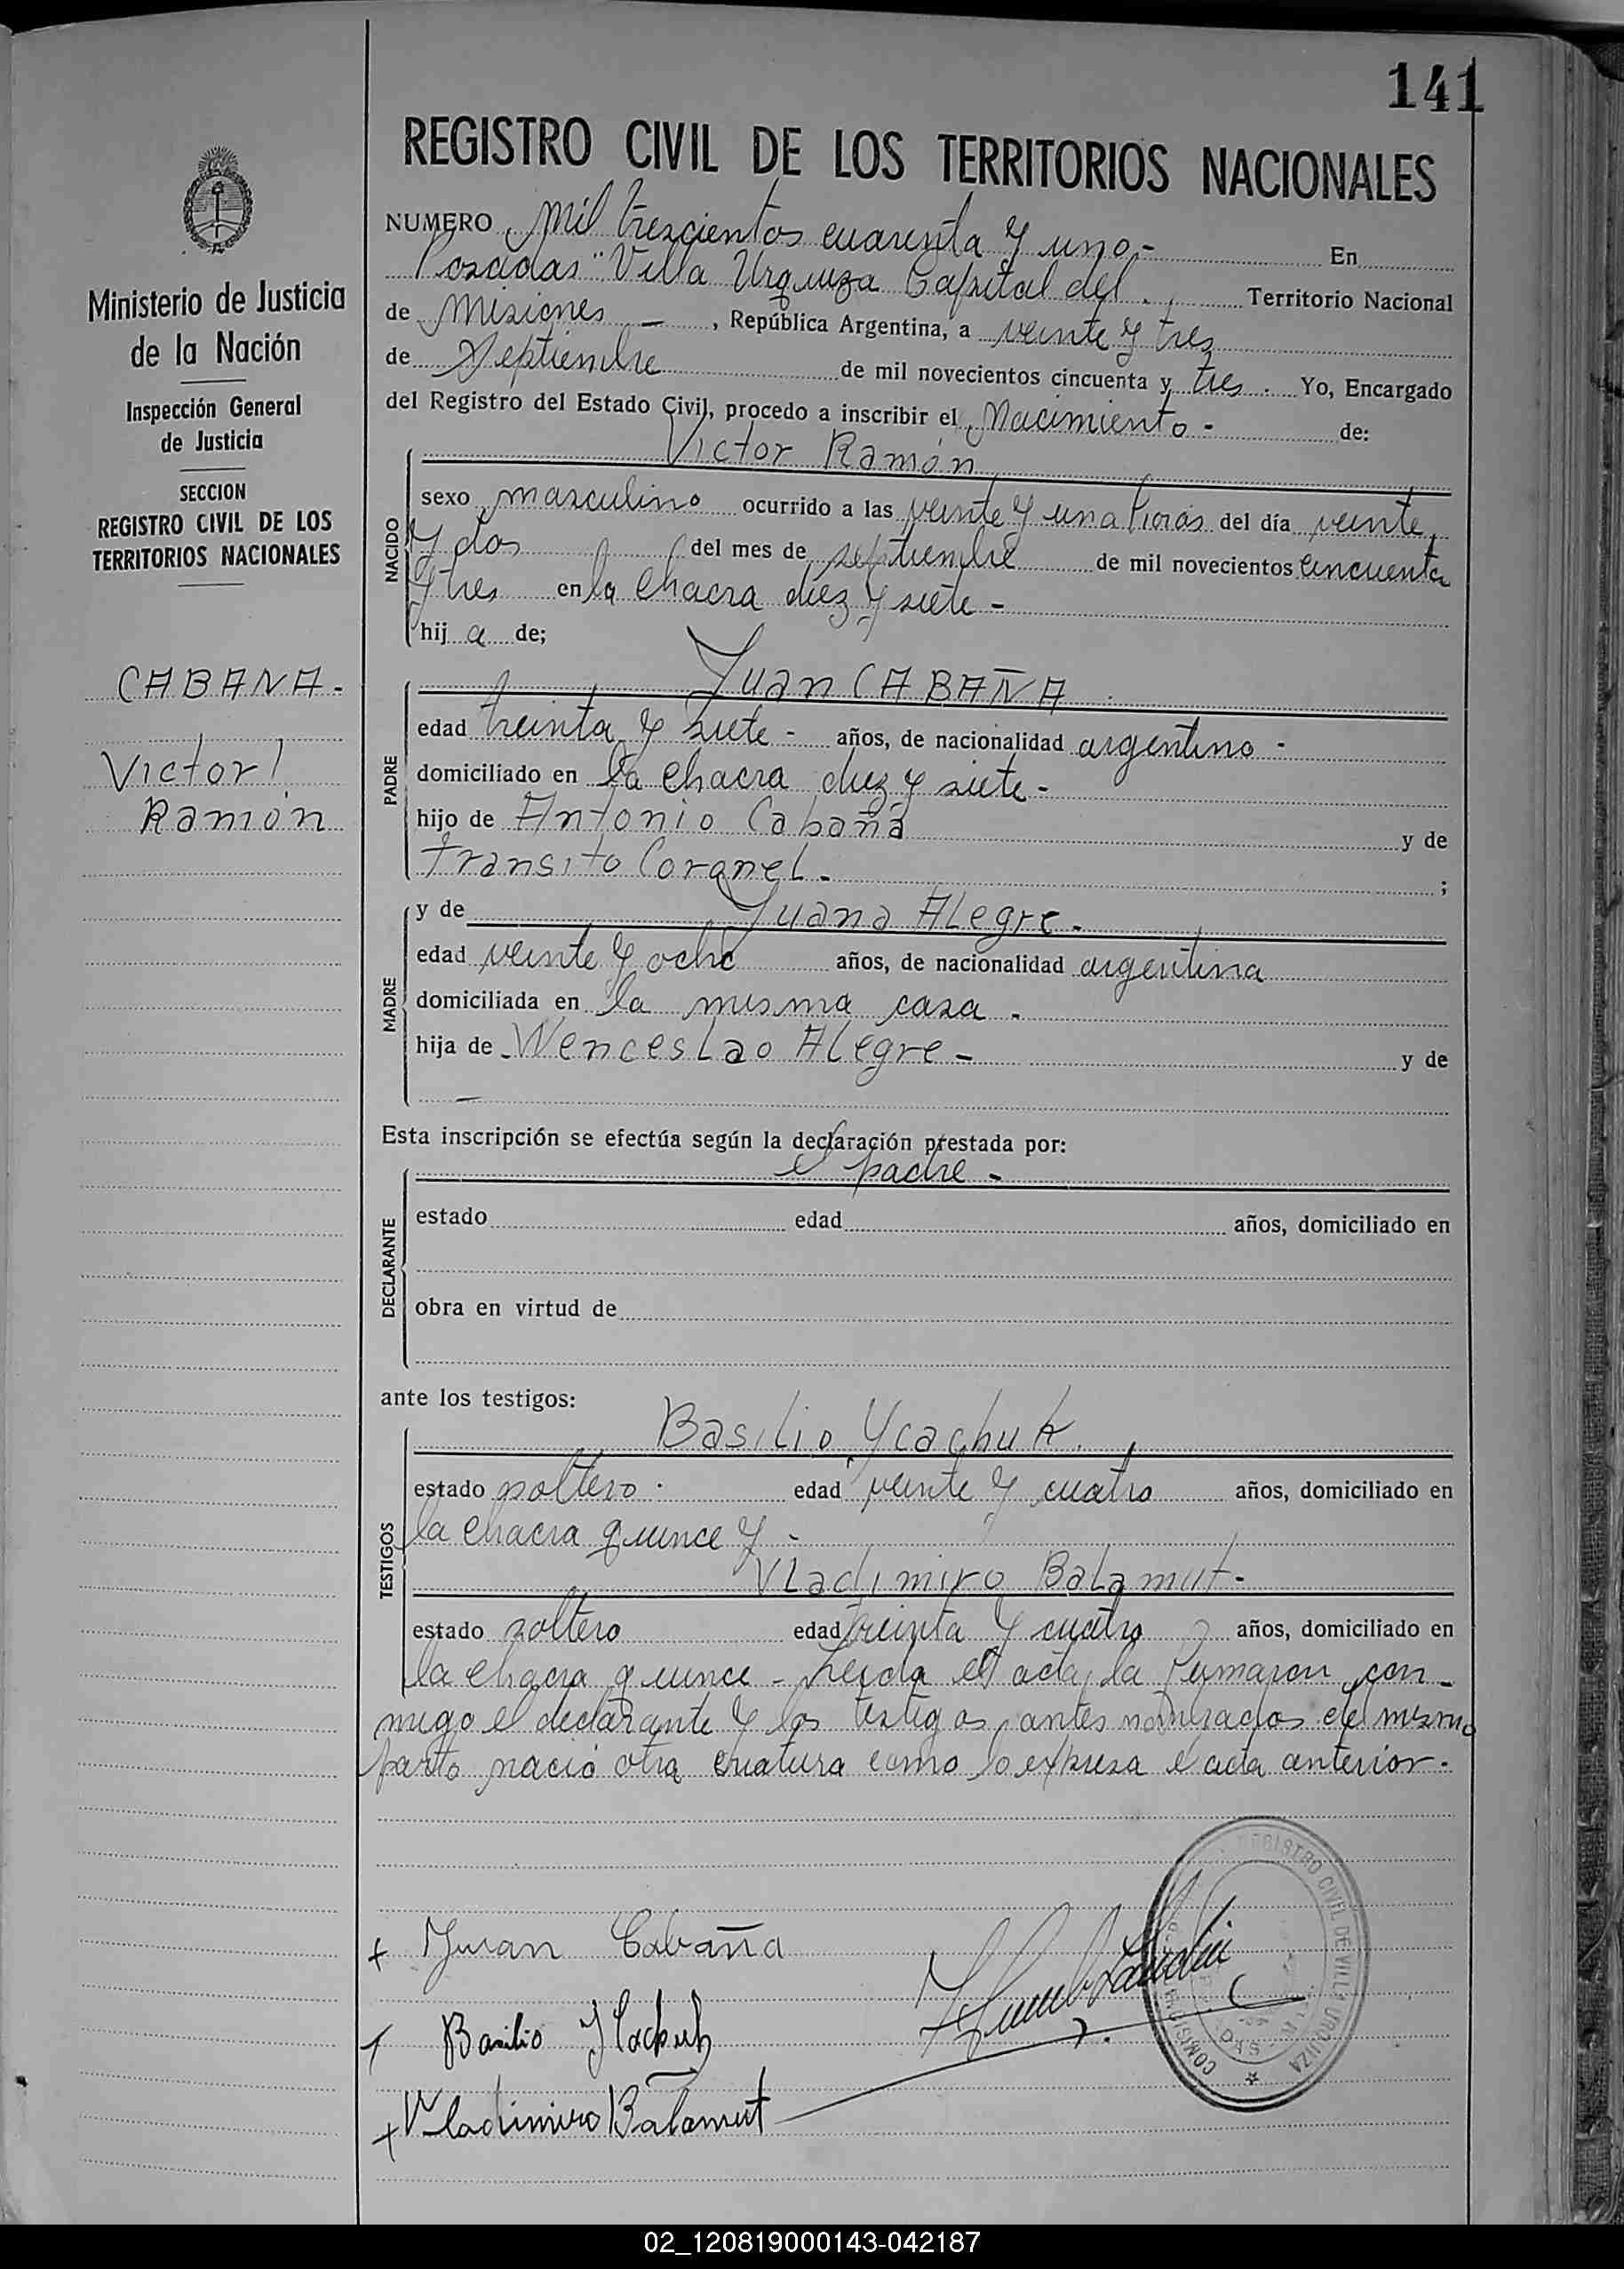 141
REGISTRO CIVIL DE LOS TERRITORIOS NACIONALES
Ministerio de Justicia
de la Nación
Inspección General
de Justicia
SECCION
REGISTRO CIVIL DE LOS
TERRITORIOS NACIONALES
CABANA.-
Victor
Ramón
NUMERO Mil trescientos cuarenta y uno.- En
Posadas "Villa Urquiza Capital del Territorio Nacional
de Misiones - , República Argentina, a veinte y tres
de Septiembre de mil novecientos cincuenta y tres. Yo, Encargado
del Registro del Estado Civil, procedo a inscribir el Nacimiento.- de:
Victor Ramón
NACIDO
sexo masculino ocurrido a las veinte y una horas del día veinte
y dos del mes de septiembre de mil novecientos cincuenta
y tres en la chacra diez y siete -
hij a de;
Juan CABAÑA
PADRE
edad treinta y siete - años, de nacionalidad argentino -
domiciliado en la chacra diez y siete -
hijo de Antonio Cabaña y de
Transito Coronel.- ;
MADRE
y de Juana Alegre.-
edad veinte y ocho años, de nacionalidad argentina
domiciliada en la misma casa -
hija de Wenceslao Alegre - y de
-
Esta inscripción se efectúa según la declaración prestada por:
el padre -
DECLARANTE
estado edad años, domiciliado en
obra en virtud de
ante los testigos:
Basilio Ycachuk.
TESTIGOS
estado soltero. edad veinte y cuatro años, domiciliado en
la chacra quince y -
Vladimiro Balamut.-
estado soltero edad treinta y cuatro años, domiciliado en
la chacra quince - Leida el acta, la firmaron con-
migo el declarante y los testigos antes nombrados del mismo
parto nació otra criatura como lo expresa el acta anterior.-
+ Juan Cabaña
Basilio
+ Vladimiro Balamut
REGISTRO CIVIL DE VILLA URQUIZA
02_120819000143-042187